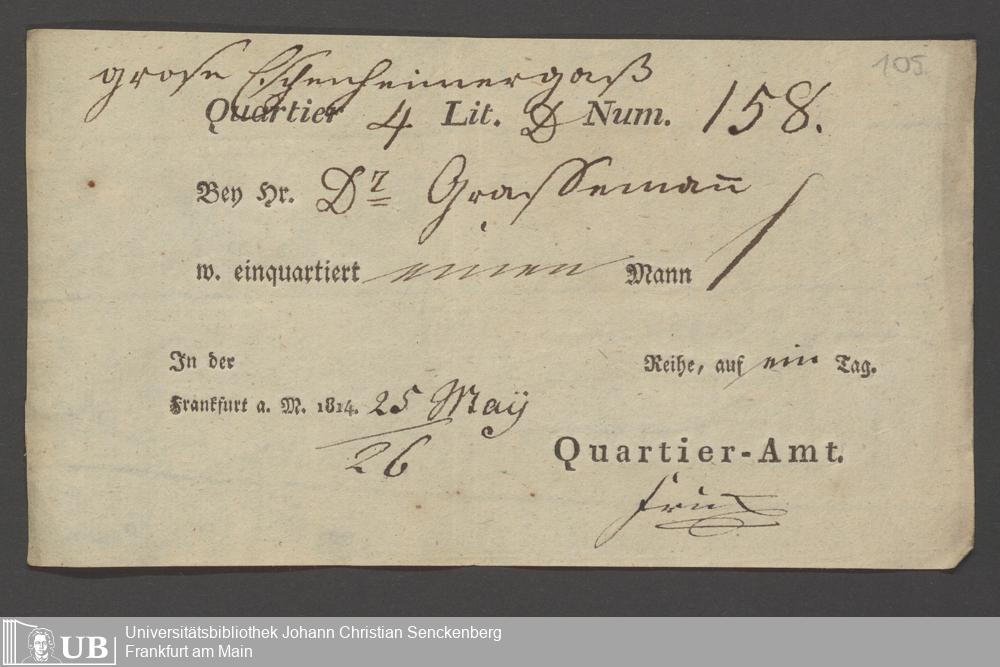 105.
grose Eschenheimergaß
Quartier 4 Lit. D Num. 158.
Bey Hr. Dr Grassemañ
w. einquartiert einen Mann 1
In der Reihe, auf ein Tag.
Frankfurt a. M. 1814. 25 May
26
Quartier-Amt.
UB Universitätsbibliothek Johann Christian Senckenberg
Frankfurt am Main